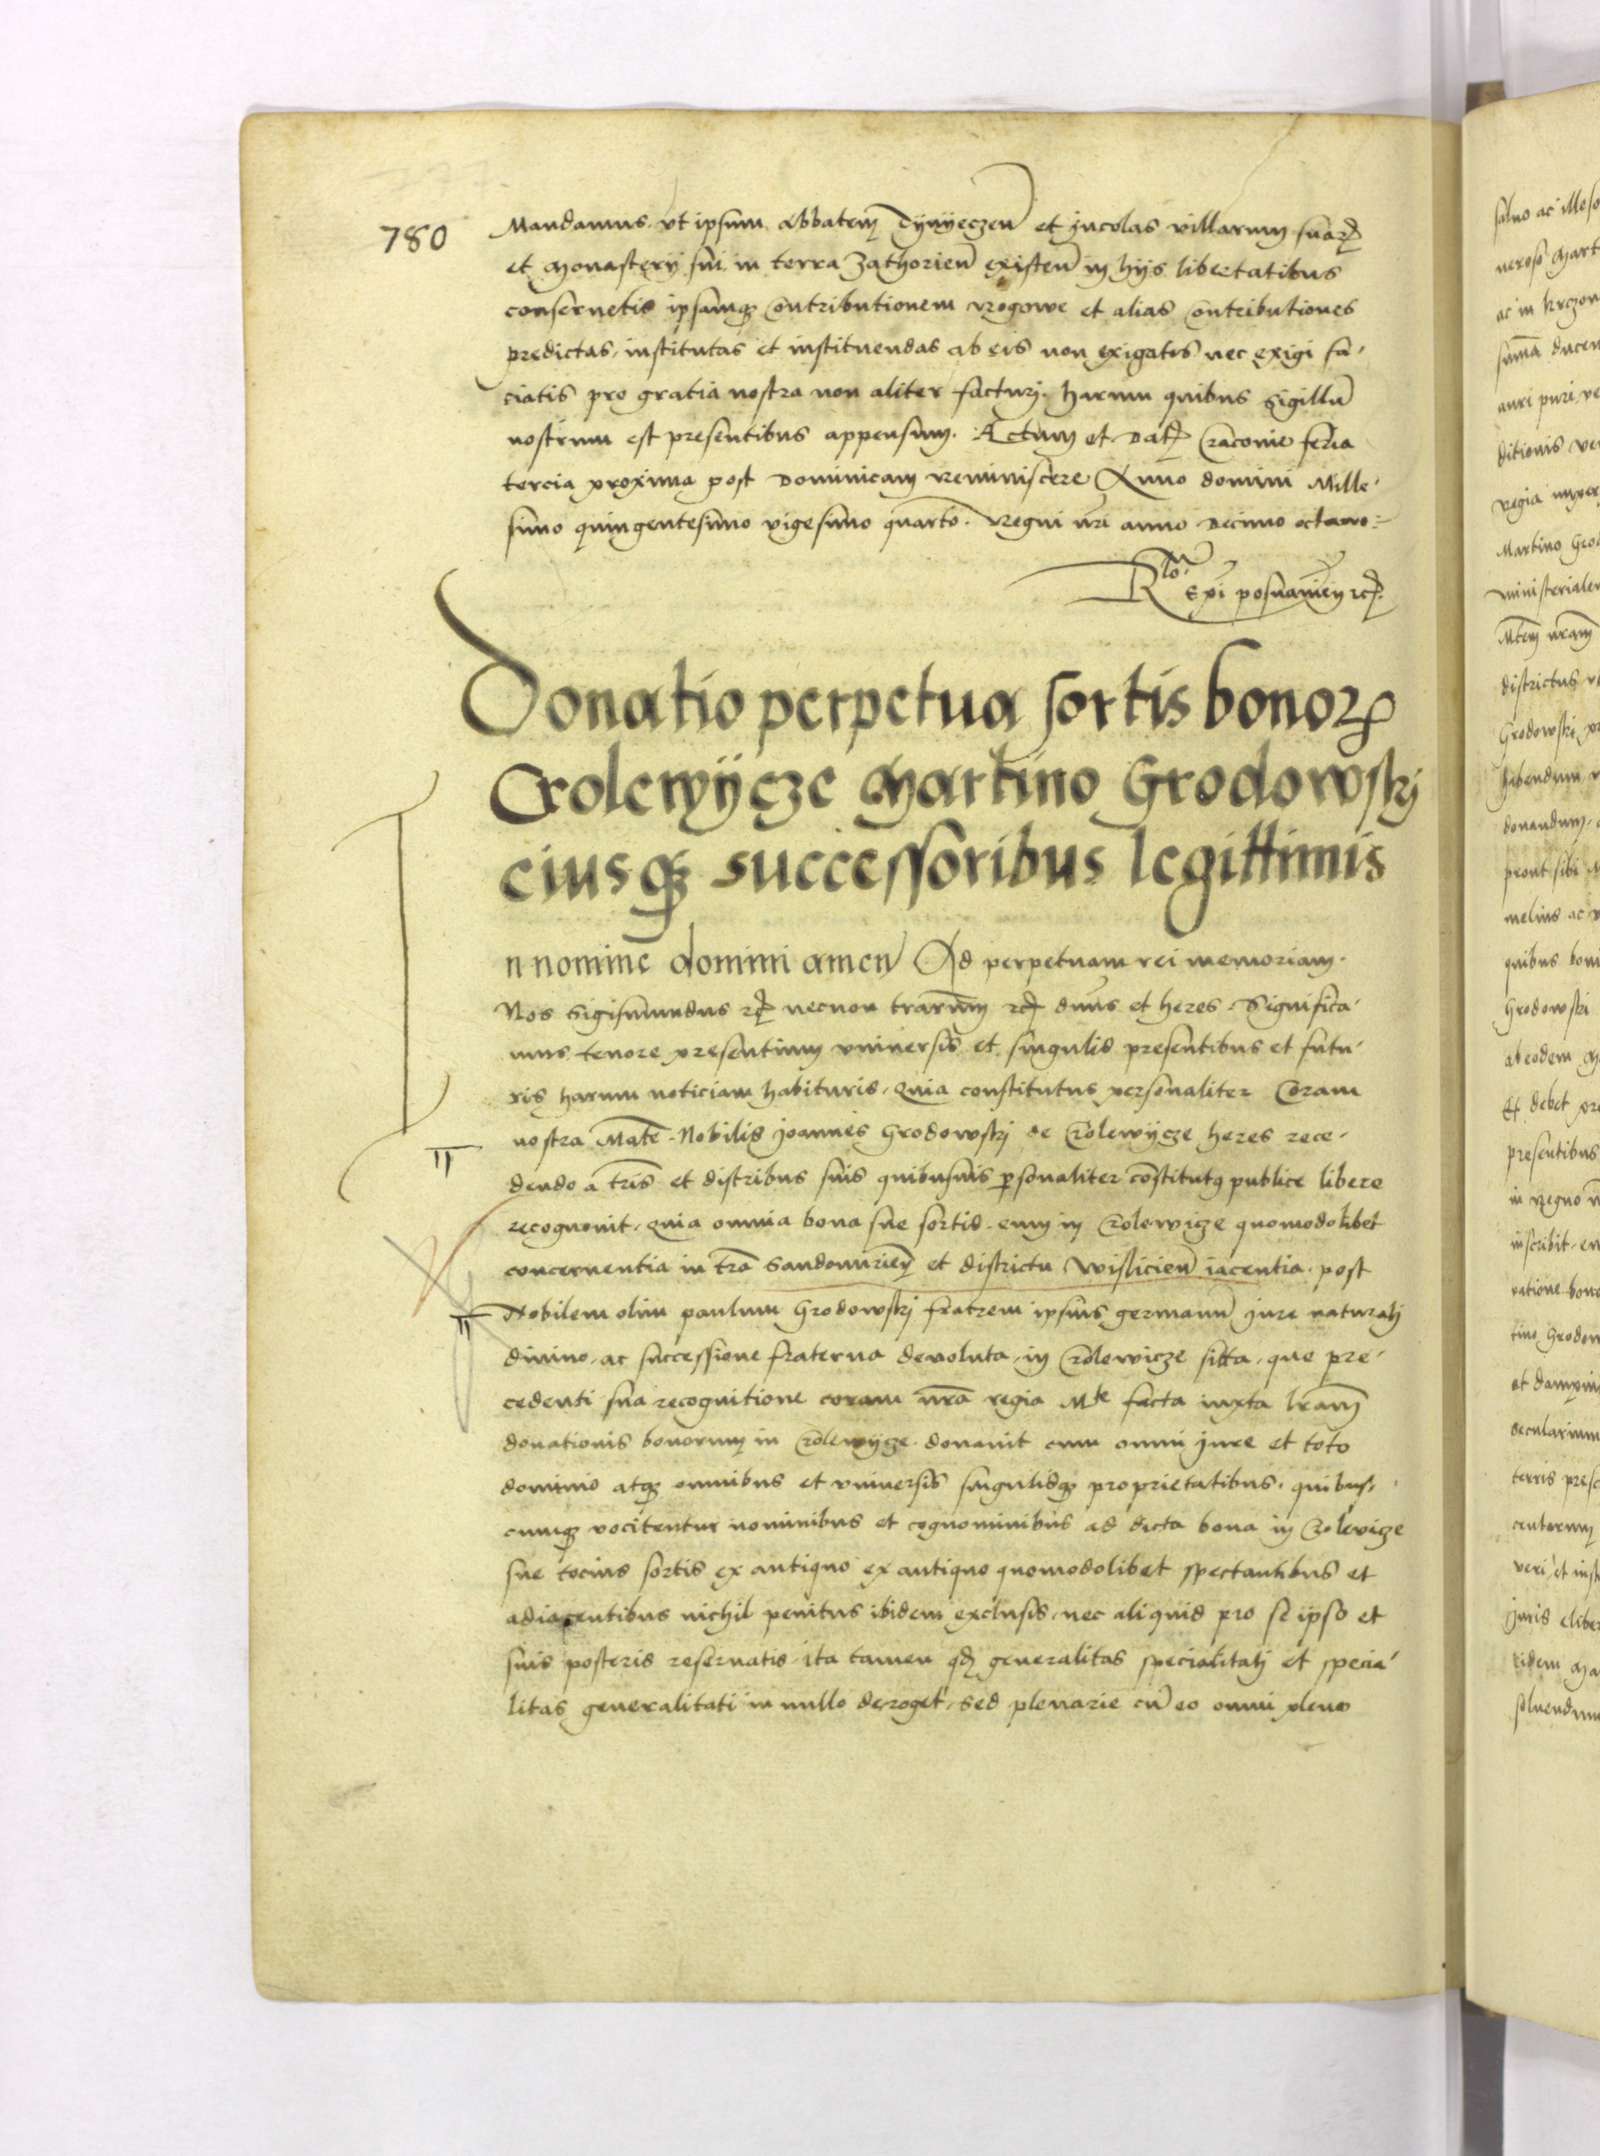 780
Mandamus. vt ipsum Abbatem Tynyeczen et Incolas villarum suar
et Monastery sui in terra Zathorien existen in hijs libertatibus
conseruetis ipsamq Contributionem Rogowe et alias Contributiones
predictas, institutas et instituendas ab eis non exigatis nec exigi fa-
ciatis pro gratia nostra non aliter facturj. Harum quibus Sigillu
nostrum est presentibus appensum. Actum et Dat Cracouie feria
tercia proxima post Dominicam Reminiscere Anno domini Mille-
simo quingentesimo vigesimo quarto. Regni nri anno Decimo octauo:
Rlo Epi posnanien
Donatio perpetua sortis bonor
Crolewÿcze Martino Grodowskj
eiusq successoribus legittimis
In nomine domini amen Ad perpetuam rei memoriam.
Nos Sigismundus necnon trarum dnus et heres. Significa-
mus tenore presentium vniuersis et singulis presentibus et futu-
ris harum noticiam habituris, Quia constitutus personaliter Coram
nostra Mate. Nobilis Joannes Grodowskj de Crolewÿcze heres rece-
dendo a tris et distribus suis quibusuis personaliter constitutq publice libere
recognouit, Quia omnia bona sue sortis. eum in Crolewicze quomodolibet
concernentia in tra Sandomirien et districtu Wislicien iacentia. post
Nobilem olim paulum Grodowskj fratrem ipsius germanu Jure naturalj
diuino, ac successione fraterna deuoluta, in Crolewicze sitta, que pre-
cedenti sua recognitione coram nra regia Mte facta iuxta lram
donationis bonorum in Crolewÿcze. donauit cum omni Jure et toto
dominio atq omnibus et vniuersis singulisq proprietatibus, quibus-
cumq vocitentur nominibus et cognominibus ad dicta bona in Crolewicze
sue tocius sortis ex antiquo ex antiquo quomodolibet spectantibus et
adiacentibus nichil penitus ibidem exclusis, nec aliquid pro se ipso et
suis posteris reseruatis, ita tamen qd generalitas specialitatj et specia-
litas generalitati in nullo deroget, sed plenarie cu eo omni pleno